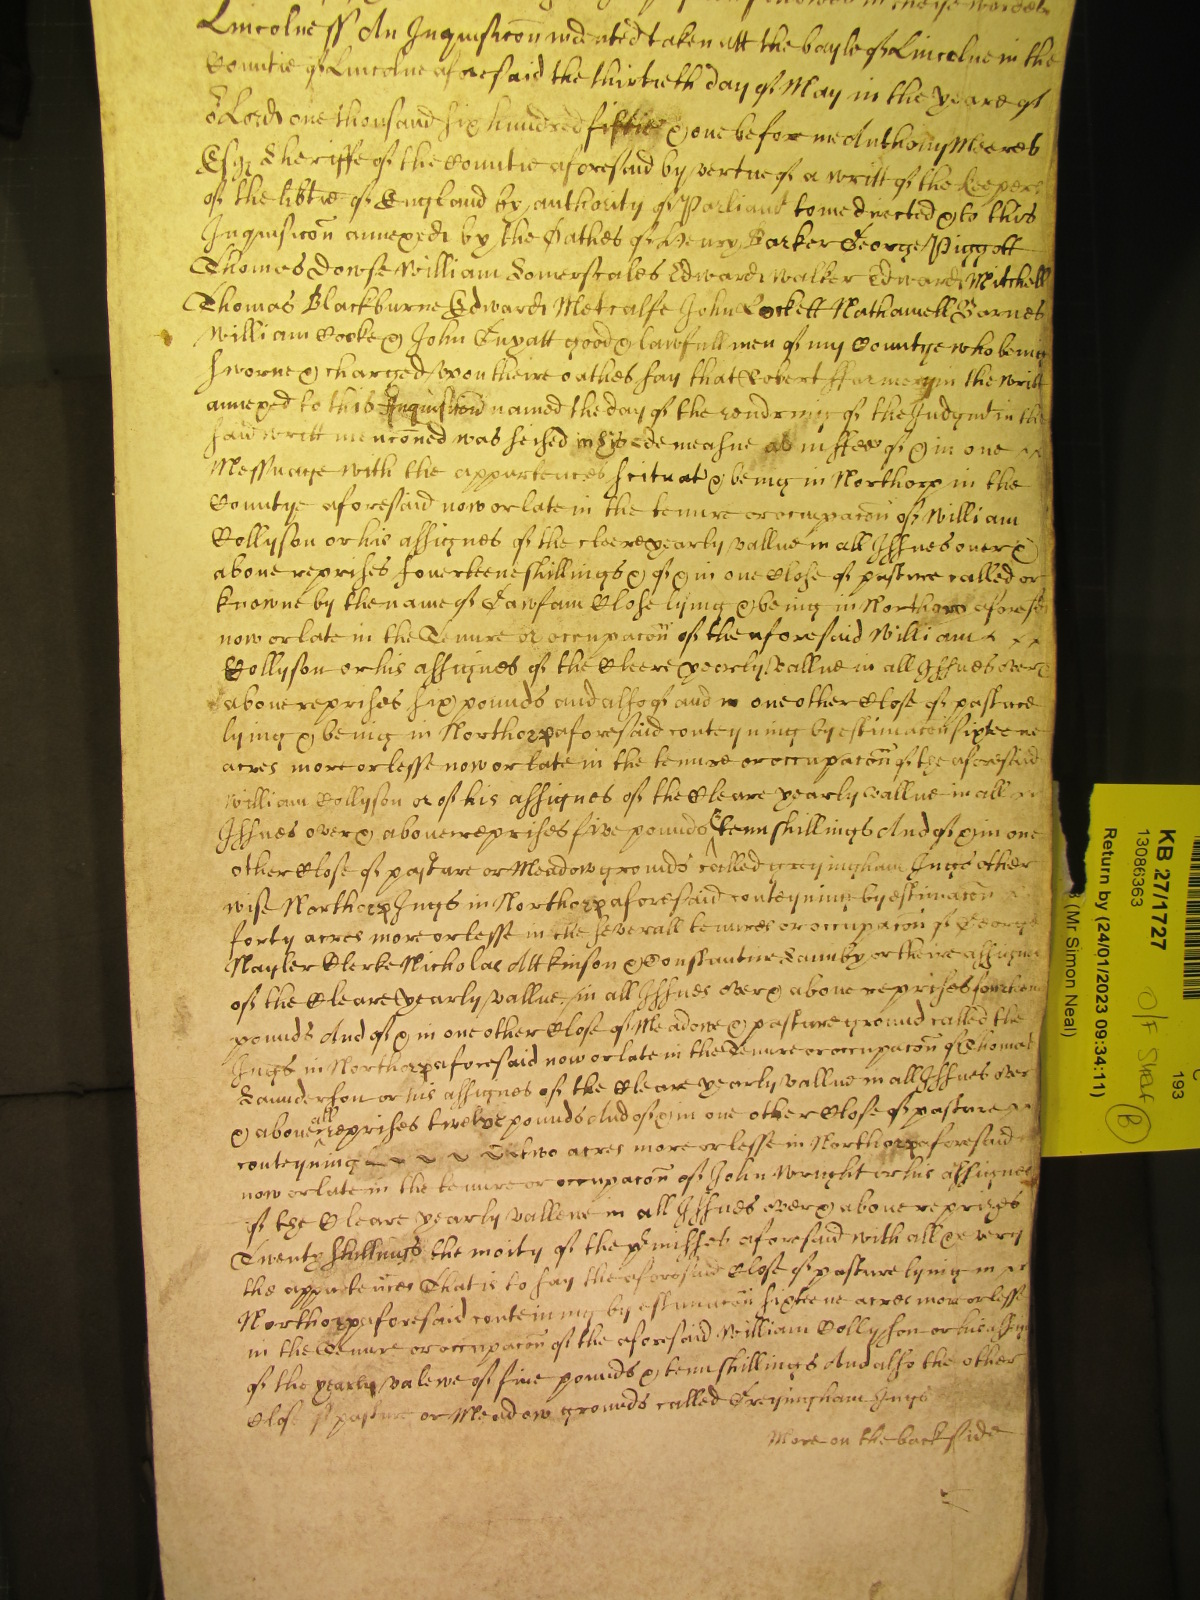 Lincolne ss An Inquisicõn indented taken att the bayle of Lincolne in the
Countie of Lincolne aforesaid the thirtieth day of May in the yeare of
o Lord one thousand six hundred fiftie & one before me Anthony Meeres
Esqr Sheriffe of the Countie aforesaid by vertue of a writt of the Keepers
of the libtie of England by authority of Parliamt to me directed & to this
Inquisicõn annexed by the Oathes of Henry Barker George Piggott
Thomas Dowse William Somerscales Edward Walker Edward Mitchell
Thomas Blackburne Edward Metcalfe John Lockett Nathaniell Barnes
William Cooke & John good & lawfull men of my Countye who being
sworne & charged upon theire oathes say that Robert ffarmery in the writt
annexed to this Inquisicõn named the day of the rendring of the Judgmt in the
said writt mencõned was seised in his demeasne as in ffee of & in one
Messuage with the appurtences scituat & being in Northorp in the
Countye aforesaid now or late in the tenure or occupacõn of William
Collyson or his assignes of the cleere yearly vallue in all Issues over &
above reprises fouerteene shillings & of & in one Close of pasture called or
knowne by the name of Close lying & being in Northorp aforesd
now or late in the Tenure or occupacõn of the aforesaid William
Collyson or his assignes of the Cleere yearly Vallue in all Issues over &
above reprises six pounds and also of and in one other Close of pasture
lying & being in Northorpp aforesaid conteyning by estimacõn sixteene
acres more or lesse now or late in the tenure or occupacõn of the aforesaid
William Collyson or of his assignes of the Cleare yearly vallue in all
Issues over & above reprises five pounds & tenn shillings And of & in one
other Close of pasture or Meadow grounds called greyingham Ings other
wise Northorpp Ings in Northorpp aforesaid conteyning by estimacõn
forty acres more or lesse in the severall tenures or occupacõn of George
Nayler Clerke Nicholas Attkinson & Constantine or theire assignes
of the Cleare yearly vallue in all Issues over & above reprises fourteen
pounds And of & in one other Close of Meadowe & pasture ground called the
Ings in Northorpp aforesaid now or late in the Tenure or occupacõn of Thomas
Saunderson or his assignes of the Cleare yearly vallue in all Issues over
& above all reprises twelve pounds And of & in one other Close of pasture
conteyning two acres more or lesse in Northorpp aforesaid
now or late in the tenure or occupacõn of John Wright or his assignes
of the Cleare yearly vallewe in all Issues over & above reprises
Twenty shillings the moity of the pmisses aforesaid with all & every
the appurtences That is to say the aforesaid Close of pasture lying in
Northorpp aforesaid conteining by estimacõn sixteene acres more or lesse
in the Tenure or occupacõn of the aforesaid William Collyson or his assignes
of the yearly valewe of five pounds & tenn shillings And also the other
Close of pasture or Meadow grounds called Greyingham Ings
More on the backside
KB 27/1727
13086363
Return by (24/01/2023 09:34:11)
(Mr Simon Neal)
193
O/F Shelf
B